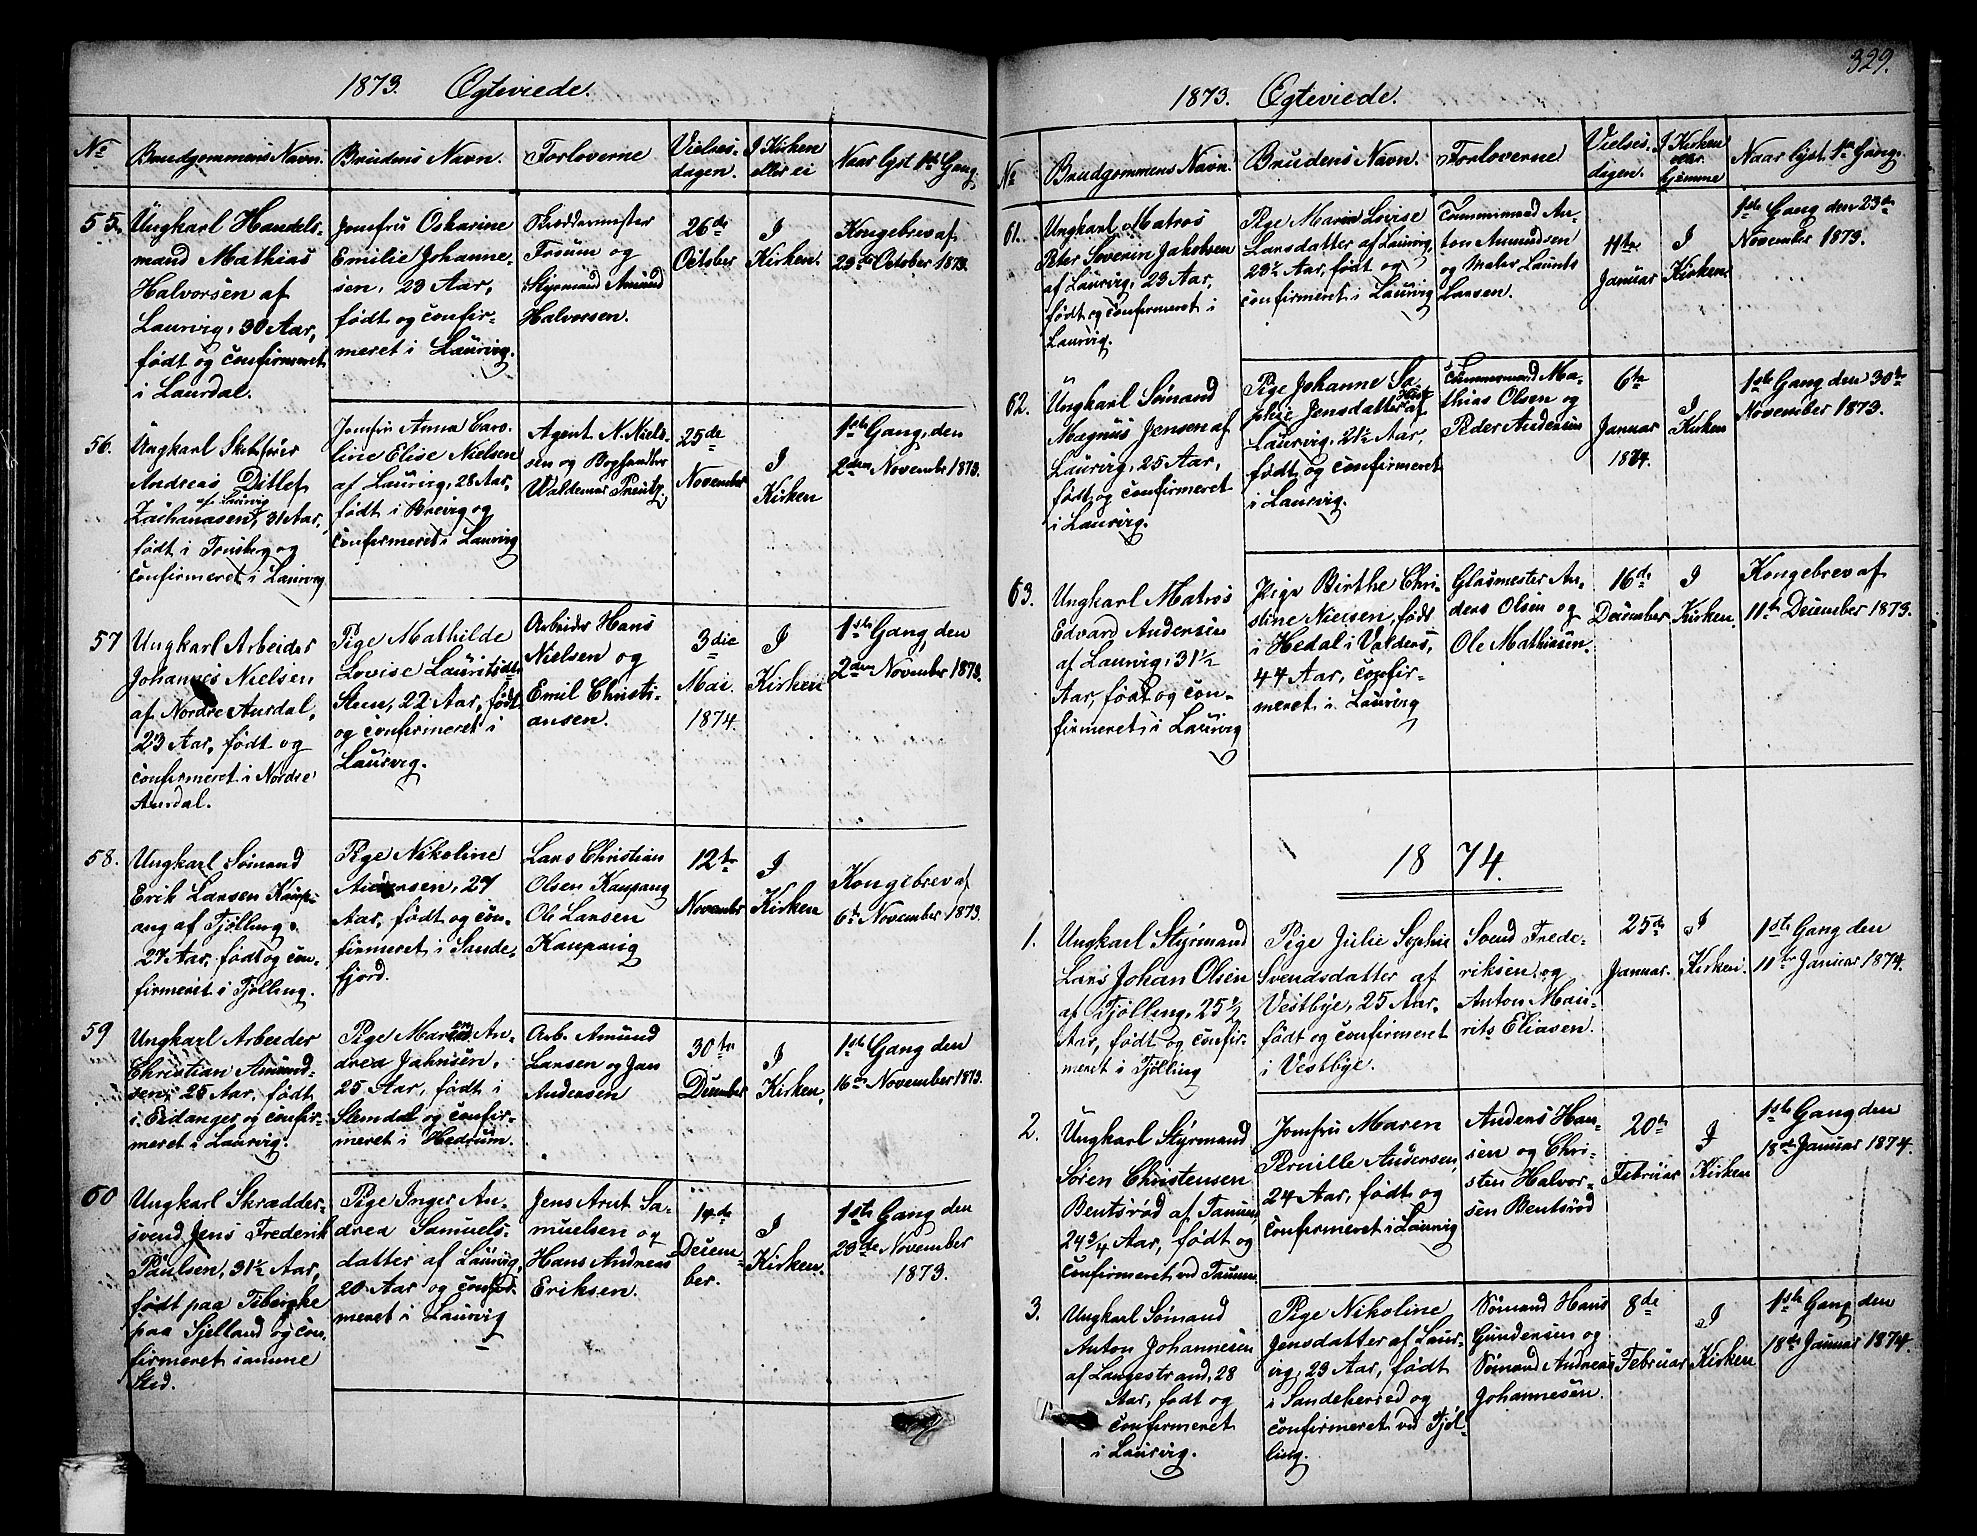 1873. Ægteviede.
No
Brudgommens Navn.
Brudens Navn.
Forloverne
Vielses-
dagen.
I Kirken
eller ei
Naar lyst 1ste Gang.
55.
Ungkarl Handels-
mand Mathias
Halvorsen af
Laurvig, 30 Aar,
født og confirmeret
i Laurdal.
Jomfru Oskarine
Emilie Johanne-
sen, 23 Aar,
født og confir-
meret i Laurvig.
Fosum og
Styrmand Amund
Halvorsen.
26de
October
I
Kirken.
Kongebrev af
23de October 1873.
56.
Ungkarl Skibsfører
Andreas Ditlef
af Laurvig
Zachariasen, 31 Aar,
født i Tønsberg og
confirmeret i Laurvig
Jomfru Anna Caro-
line Elise Nielsen
af Laurvig, 28 Aar,
født i Brevig og
confirmeret i Laurvig
Agent N. Niels-
sen og Boghandler
Waldemar
25de
November
I
Kirken
1ste Gang den
2den November 1873.
57
Ungkarl Arbeider
Johannes Nielsen
af Nordre Aurdal,
23 Aar, født og
confirmeret i Nordre
Aurdal.
Pige Mathilde
Lovise Lauritsdtr
Steen, 22 Aar, født
og confirmeret i
Laurvig.
Arbeider Hans
Nielsen og
Emil Christi-
ansen.
3die
Mai.
1874.
I
Kirken
1ste Gang den
2den November 1873.
58.
Ungkarl Sømand
Erik Larsen Kaup-
ang af Tjølling,
27 Aar, født og con-
firmeret i Tjølling.
Pige Nikoline
Andersen, 27
Aar, født og con-
firmeret i Sande-
fjord.
Lars Christian
Olsen Kaupang
Ole Larsen
Kaupang
12te
November
I
Kirken
Kongebrev af
6te November 1873.
59
Ungkarl Arbeider
Christian Amund-
sen, 25 Aar, født
i Eidanger og confir-
meret i Laurvig.
Pige Maren An-
drea Jahnsen,
25 Aar, født i
Slemdal og confir-
meret i Hedrum.
Arb. Amund
Larsen og Jan
Andersen
30te
December
I
Kirken,
1ste Gang den
16de November 1873.
60
Ungkarl Skrædder-
svend Jens Frederik
Paulsen, 31½ Aar,
født paa Tibirke
paa Sjelland og con-
firmeret samme
Sted.
Pige Inger An-
drea Samuels-
datter af Laurvig,
20 Aar og confir-
meret i Laurvig
Jens Arnt Sa-
muelsen og
Hans Andreas
Eriksen.
14de
Decem-
ber.
I
Kirken.
1ste Gang den
23de November
1873.
329.
1873. Ægteviede.
No
Brudgommens Navn.
Brudens Navn.
Forloverne
Vielses-
dagen.
I Kirken
hjemme
Naar lyst 1ste Gang.
61.
Ungkarl Matros
Peter Severin Jakobsen
af Laurvig, 23 Aar,
født og confirmeret i
Laurvig.
Pige Maria Lovise
Larsdatter af Laurvig,
23½ Aar, født og
confirmeret i Laurvig
Tømmermand An-
ton Amundsen
og Maler Laurits
Larsen.
11te
Januar
I
Kirken
1ste Gang den 23de
November 1873.
62.
Ungkarl Sømand
Magnus Jensen af
Laurvig, 25 Aar,
født og confirmeret
i Laurvig.
Pige Johanne So-
phie Jensdatter af
Laurvig, 21½ Aar,
født og confirmeret
i Laurvig.
Tømmermand Ma-
thias Olsen og
Peder Andersen
6te
Januar
1874.
I
Kirken
1ste Gang den 30te
November 1873.
63.
Ungkarl Matros
Edvard Andersen
af Laurvig, 31½
Aar, født og con-
firmeret i Laurvig
Pige Birthe Chri-
stine Nielsen, født
i Hedal i Valders,
44 Aar, confir-
meret i Laurvig
Glasmester An-
ders Olsen og
Ole Mathisen.
16de
December
I
Kirken.
Kongebrev af
11te December 1873.
1874.
1.
Ungkarl Styrmand
Lars Johan Olsen
af Tjølling, 25½
Aar, født og confir-
meret i Tjølling
Pige Julie Sophie
Svendsdatter af
Vestbye, 25 Aar,
født og confirmeret
i Vestbye.
Svend Frede-
riksen og
Anton Mau-
rits Eliasen.
25de
Januar.
I
Kirken.
1ste Gang den
11te Januar 1874.
2.
Ungkarl Styrmand
Søren Christensen
Bentsrød af Tanum,
24¾ Aar, født og
confirmeret ved Tanum.
Jomfru Maren
Pernille Andersen,
24 Aar, født og
confirmeret i Laurvig
Anders Han-
sen og Chri-
sten Halvor-
sen Bentsrød
20de
Februar
I
Kirken
1ste Gang den
18de Januar 1874.
3.
Ungkarl Sømand
Anton Johannesen
af Langestrand, 28
Aar, født og
confirmeret
i Laurvig.
Pige Nikoline
Jensdatter af Laur-
vig, 23 Aar, født
i Sandeherred og
confirmeret ved Tjøl-
ling.
Sømand Hans
Gundersen og
Sømand Andreas
Johannesen.
8de
Februar
I
Kirken
1ste Gang den
18de Januar 1874.